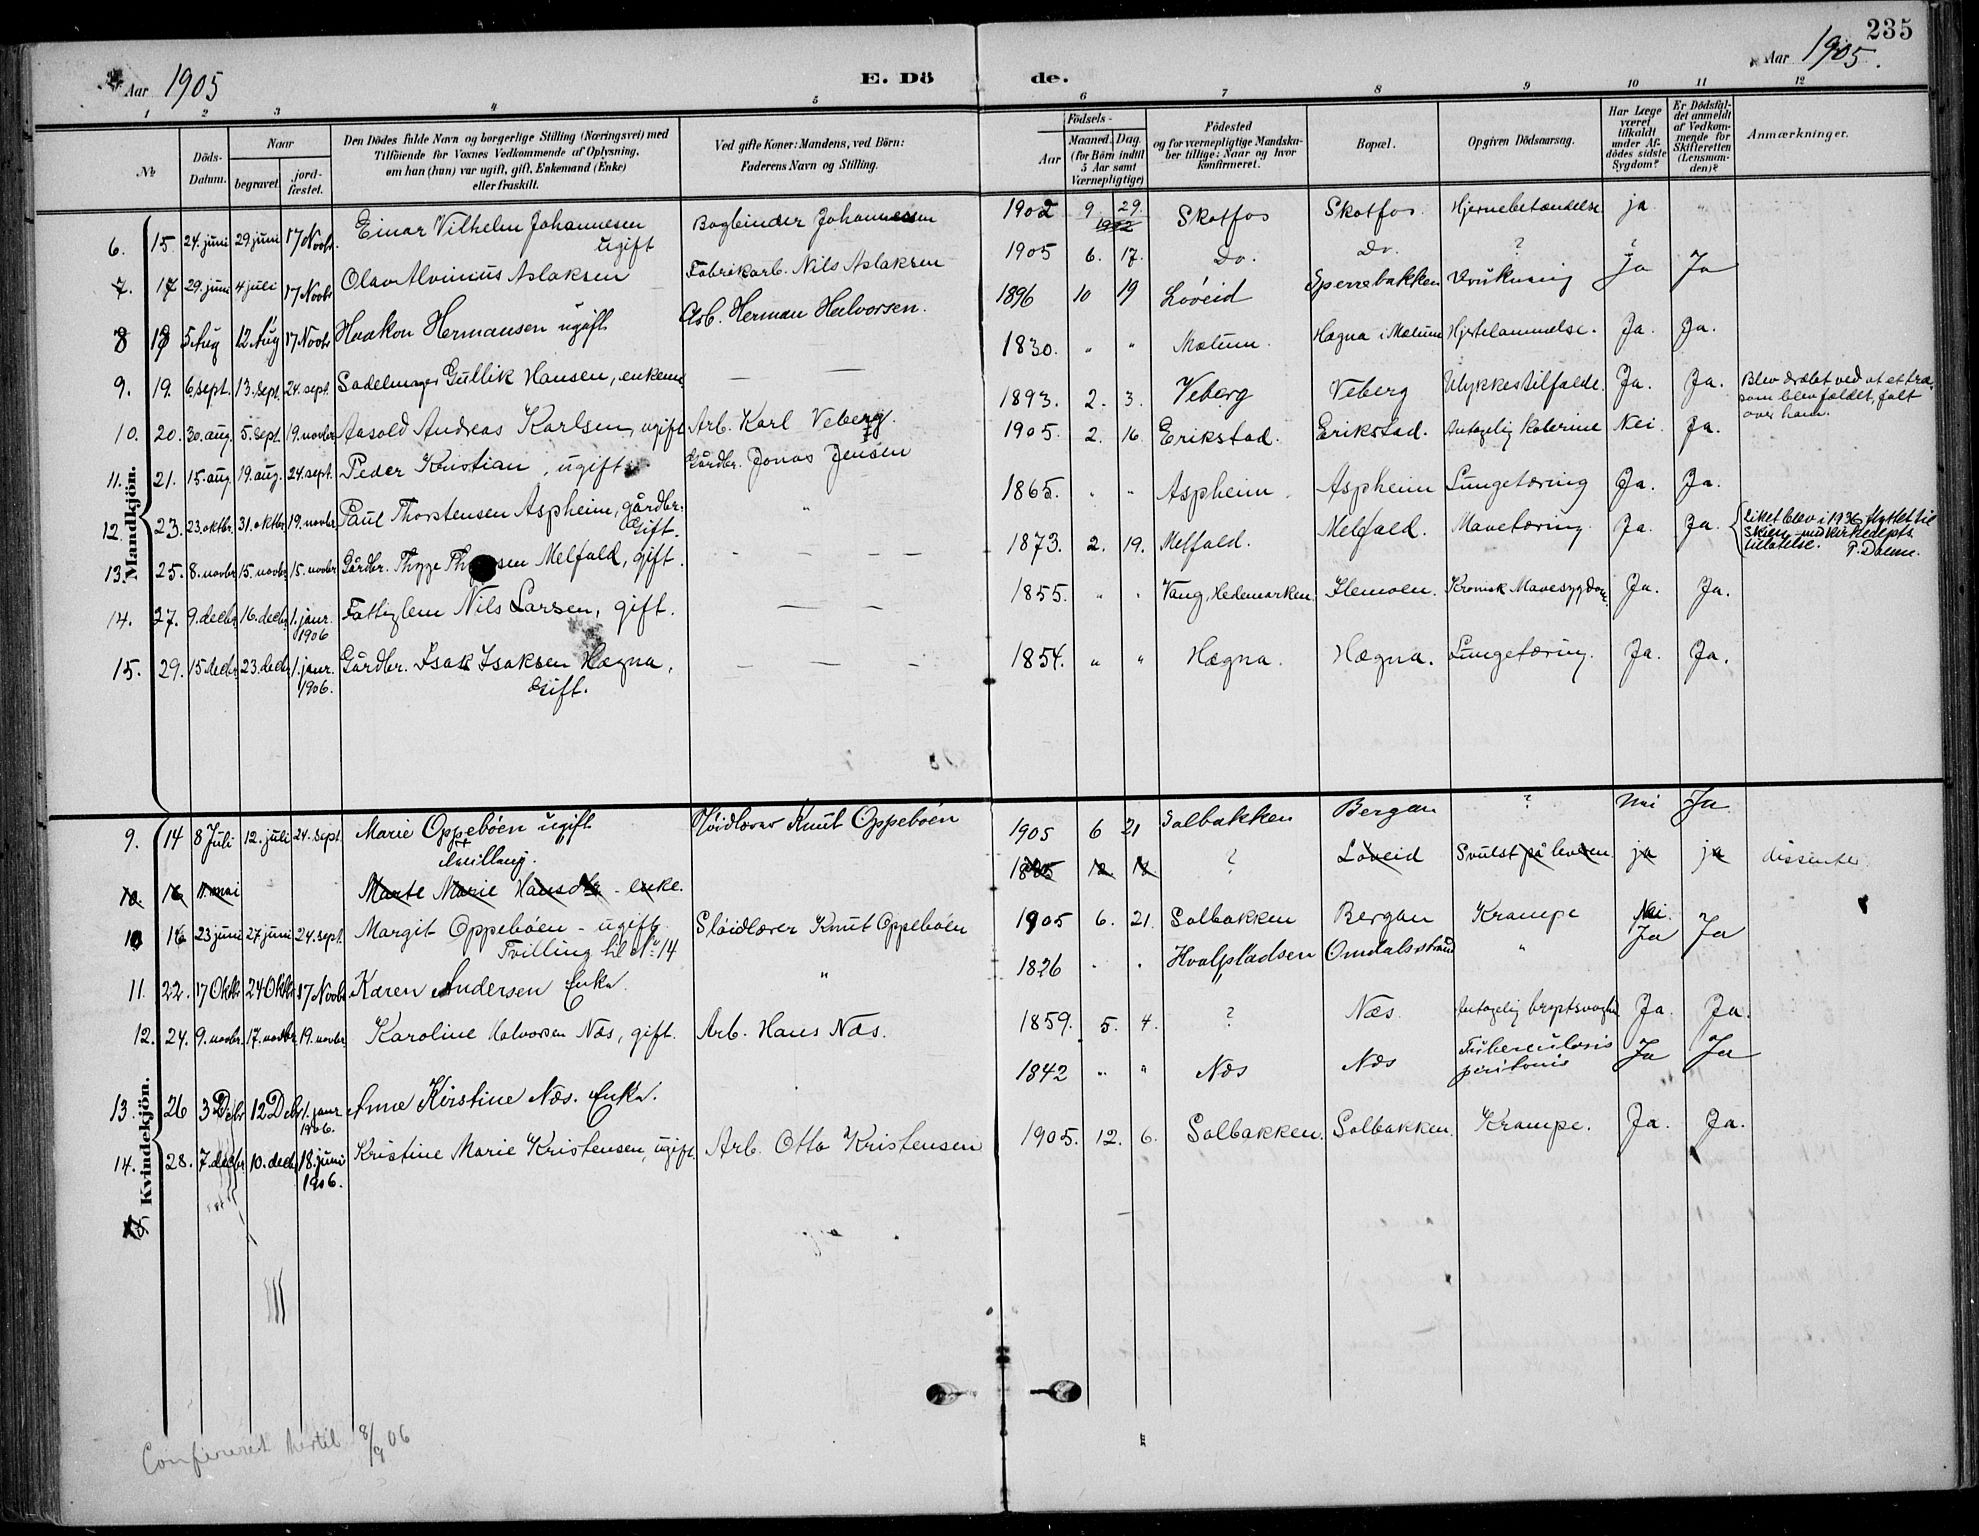 235
Aar 1905
E. Dö de.
Aar 1905.
1 2 3 4 5 6 7 8 9 10 11 12
No
Döds-Datum.
Naar
begravet.
jord-fæstet.
Den Dödes fulde Navn og borgerlige Stilling (Næringsvei) med
Tilföiende for Voxnes Vedkommende af Oplysning,
om han (hun) var ugift, gift, Enkemand (Enke)
eller fraskilt.
Ved gifte Koner: Mandens, ved Börn:
Faderens Navn og Stilling.
Födsels-
Aar
Maaned. Dag.
(for Börn indtil
5 Aar samt
Værnepligtige)
Födested
og for værnepligtige Mandska-
ber tillige: Naar og hvor
konfirmeret.
Bopæl.
Opgiven Dödsaarsag.
Har Læge
været
tilkaldt
under Af-
dödes sidste
Sygdom?
Er Dödsfal-
det anmeldt
af Vedkom-
mende for
Skifteretten
(Lensman-
den)?
Anmærkninger.
Mandkjön.
6. 15 24. juni 29. juni 17 Novbr. Einar Vilhelm Johannesen ugift Bogbinder Johannessen 1902 9. 29. 1902 Skotfos Skotfos. Hjernebetændelse ja
7. 17 29. juni 4 juli 17 Novbr Olav Alvinius Aslaksen Fabrikarb. Nils Aslaksen 1905 6. 17. Do. Do. ? ?
8 18 5 Aug 12 Aug 17 Novbr Haakon Hermansen ugift Arb. Herman Halvorsen. 1896 10 19 Löveid Sperrebakken Drukning Ja Ja
9. 19. 6. sept. 13. sept. 24. sept. Sadelmager Gullik Hansen, enkem. — — 1830. " " Mælum. Hægna i Mælum Hjertelammelse. Ja. Ja.
10. 20. 30. aug. 5. sept. 19. novbr. Aasold Andreas Karlsen, ugift Arb. Karl Veberg. 1893. 2. 3. Veberg Veberg Ulykkestilfælde. Ja. Ja. Blev dræbt ved at et træ,
som blev fældet, falt
over ham.
11. 21. 15. aug. 19. aug. 24. sept. Peder Kristian, ugift Gårdbr. Jonas Jensen 1905. 2. 16 Erikstad. Erikstad. Antagelig kolerine Nei. Ja.
12. 23. 23. oktbr. 31. oktbr. 19. novbr. Paul Thorstensen Aspheim, gårdbr. Gift. " 1865. " " Aspheim. Aspheim Lungetæring Ja. Ja.
13. 25. 8. novbr. 15. novbr. 15. novbr. Gårdbr. Thygge sen Melfald, gift. — — — — 1873. 2. 19. Melfald. Melfald. Mavetæring. Ja. Ja. Liket blev i 1936 flyttet til
Skien med Kirkedepts
tilatelse.
14. 27. 9. decbr. 16. decbr. 1. janr. 1906 Fattiglem Nils Larsen, gift. — — — 1855. " " Vang, Hedemarken. Klemoen. Kronisk Mavesygdom. Ja. Ja.
15. 29. 15 decbr. 23. decbr. 1. janr. 1906. Gårdbr. Isak Isaksen Hægna, Gift. — — — — 1854. " " Hægna. Hægna. Lungetæring. Ja. Ja.
Kvindekjön.
9. 14 8 Juli 12. juli 24. sept. Marie Oppeböen ugift Tvilling. Slöidlærer Knut Oppeböen 1905 6 21 Solbakken Bergan ? nei Ja
10. 16 11. mai Marte Marie Hansdtr - enke. ? Löveid Svulst på leveren ja ja dissenter
10 16 23 juni 27 juni 24. sept. Margit Oppebøen - ugift Tvilling til No. 14 Sløidlærer Knut Oppebøen 1905 6. 21. Solbakken Bergan Krampe Nei.
11. 22. 17 Oktbr 24 Oktbr 17 Novbr Karen Andersen Enke. " 1826 " " Hvalpladsen Omdalsstrand " Ja Ja
12. 24. 9. novbr. 17. novbr. 19. novbr. Karoline Halvorsen Næs, gift. Arb. Hans Næs. 1859. 5. 4. ? Næs Antagelig Ja. Ja.
13. 26 3 Decbr 12 Decbr 1. janr 1906. Anne Kirstine Næs. Enke. 1842 " " Næs Næs Tuberculosis peritonis Ja Ja
14. 28. 7. decbr 10. decbr 18. juni 1906. Kristine Marie Kristensen, ugift. Arb. Otto Kristensen 1905. 12. 6. Solbakken. Solbakken. Krampe. Ja. Ja.
15
Confereret hertil 8/9 06